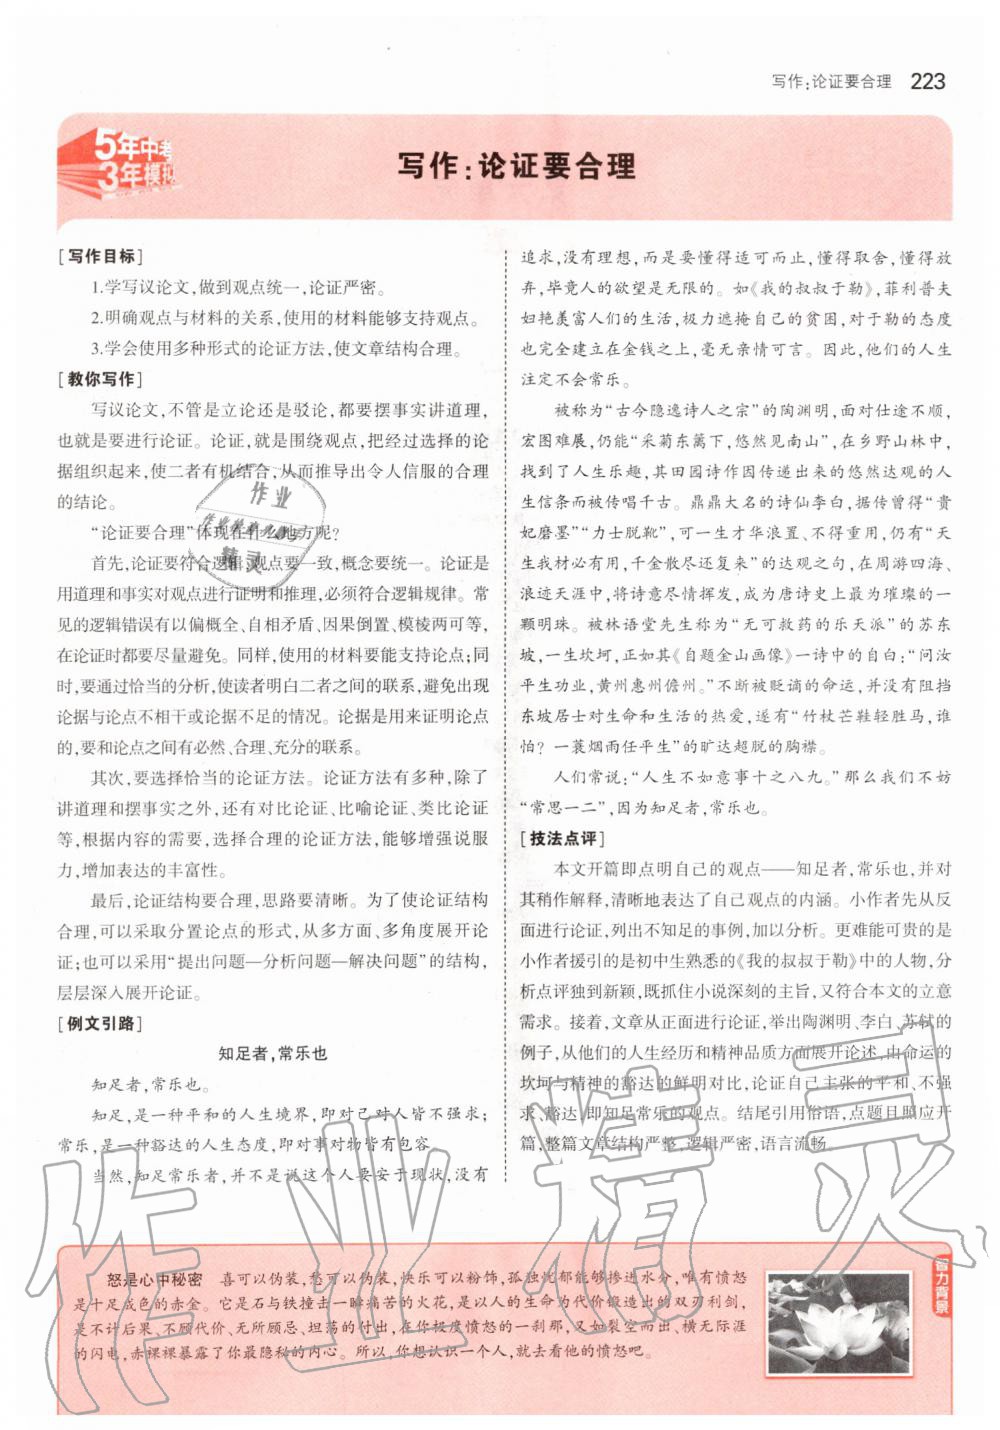 写作:论证要合理 223
5年中考
3年模拟
写作:论证要合理
[写作目标]
1.学写议论文,做到观点统一,论证严密。
2.明确观点与材料的关系,使用的材料能够支持观点。
3.学会使用多种形式的论证方法,使文章结构合理。
[教你写作]
写议论文,不管是立论还是驳论,都要摆事实讲道理,
也就是要进行论证。论证,就是围绕观点,把经过选择的论
据组织起来,使二者有机结合,从而推导出令人信服的合理
的结论。
“论证要合理”体现在什么地方呢?
首先,论证要符合逻辑,观点要一致,概念要统一。论证是
用道理和事实对观点进行证明和推理,必须符合逻辑规律。常
见的逻辑错误有以偏概全、自相矛盾、因果倒置、模棱两可等,
在论证时都要尽量避免。同样,使用的材料要能支持论点;同
时,要通过恰当的分析,使读者明白二者之间的联系,避免出现
论据与论点不相干或论据不足的情况。论据是用来证明论点
的,要和论点之间有必然、合理、充分的联系。
其次,要选择恰当的论证方法。论证方法有多种,除了
讲道理和摆事实之外,还有对比论证、比喻论证、类比论证
等,根据内容的需要,选择合理的论证方法,能够增强说服
力,增加表达的丰富性。
最后,论证结构要合理,思路要清晰。为了使论证结构
合理,可以采取分置论点的形式,从多方面、多角度展开论
证;也可以采用“提出问题—分析问题—解决问题”的结构,
层层深入展开论证。
[例文引路]
知足者,常乐也
知足者,常乐也。
知足,是一种平和的人生境界,即对己对人皆不强求;
常乐,是一种豁达的人生态度,即对事对物皆有包容。
当然,知足常乐者,并不是说这个人要安于现状,没有
追求,没有理想,而是要懂得适可而止,懂得取舍,懂得放
弃,毕竟人的欲望是无限的。如《我的叔叔于勒》,菲利普夫
妇艳羡富人们的生活,极力遮掩自己的贫困,对于勒的态度
也完全建立在金钱之上,毫无亲情可言。因此,他们的人生
注定不会常乐。
被称为“古今隐逸诗人之宗”的陶渊明,面对仕途不顺,
宏图难展,仍能“采菊东篱下,悠然见南山”,在乡野山林中,
找到了人生乐趣,其田园诗作因传递出来的悠然达观的人
生信条而被传唱千古。鼎鼎大名的诗仙李白,据传曾得“贵
妃磨墨”“力士脱靴”,可一生才华浪置、不得重用,仍有“天
生我材必有用,千金散尽还复来”的达观之句,在周游四海、
浪迹天涯中,将诗意尽情挥发,成为唐诗史上最为璀璨的一
颗明珠。被林语堂先生称为“无可救药的乐天派”的苏东
坡,一生坎坷,正如其《自题金山画像》一诗中的自白:“问汝
平生功业,黄州惠州儋州。”不断被贬谪的命运,并没有阻挡
东坡居士对生命和生活的热爱,遂有“竹杖芒鞋轻胜马,谁
怕?一蓑烟雨任平生”的旷达超脱的胸襟。
人们常说:“人生不如意事十之八九。”那么我们不妨
“常思一二”,因为知足者,常乐也。
[技法点评]
本文开篇即点明自己的观点——知足者,常乐也,并对
其稍作解释,清晰地表达了自己观点的内涵。小作者先从反
面进行论证,列出不知足的事例,加以分析。更难能可贵的是
小作者援引的是初中生熟悉的《我的叔叔于勒》中的人物,分
析点评独到新颖,既抓住小说深刻的主旨,又符合本文的立意
需求。接着,文章从正面进行论证,举出陶渊明、李白、苏轼的
例子,从他们的人生经历和精神品质方面展开论述,由命运的
坎坷与精神的豁达的鲜明对比,论证自己主张的平和、不强
求、豁达,即知足常乐的观点。结尾引用俗语,点题且照应开
篇,整篇文章结构严整,逻辑严密,语言流畅。
怒是心中秘密 喜可以伪装,愁可以伪装,快乐可以粉饰,孤独忧郁能够掺进水分,唯有愤怒
是十足成色的赤金。它是石与铁撞击一瞬痛苦的火花,是以人的生命为代价锻造出的双刃利剑,
是不计后果、不顾代价、无所顾忌、坦荡的付出,在你极度愤怒的一刹那,又如裂空而出、横无际涯
的闪电,赤裸裸暴露了你最隐秘的内心。所以,你想认识一个人,就去看他的愤怒吧。
智力背景
作业
精灵
作业精灵